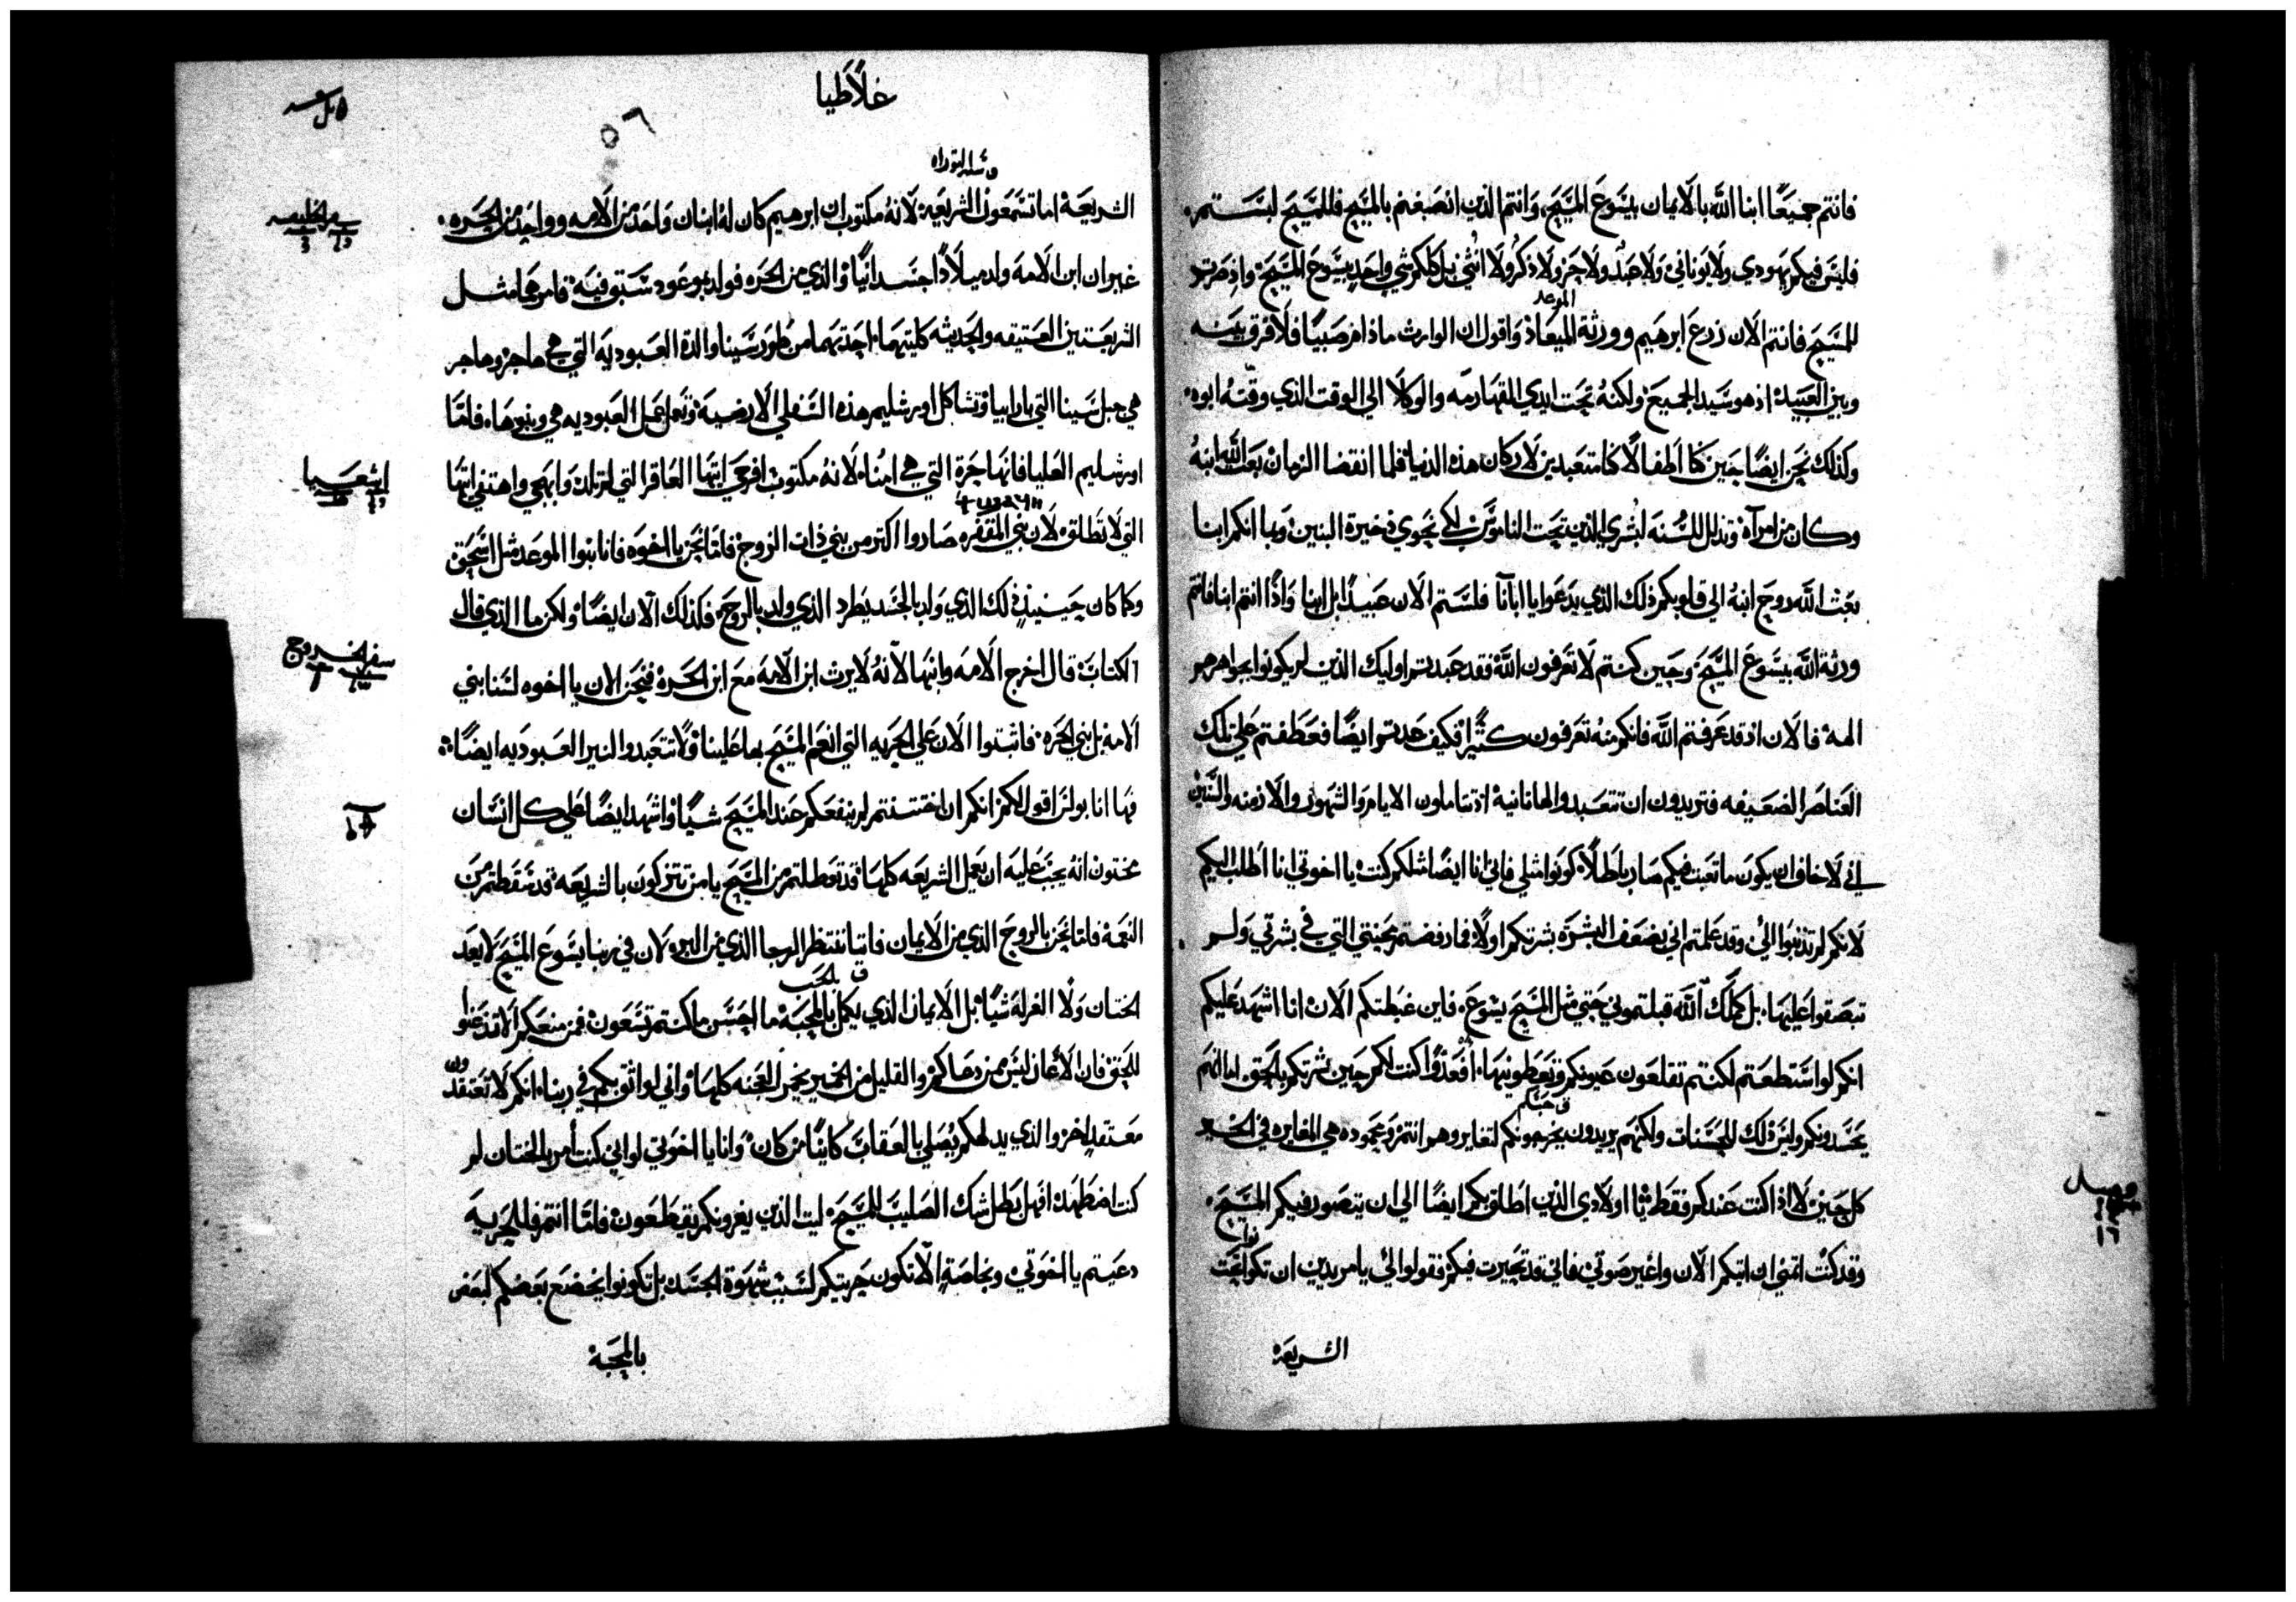 فانتم جميعًا ابنا الله بالايمان بيسوع المسيح وانتم الذين انصبغتم بالمسيح فللمسيح لبستم
فليس فيكم يهودي ولا يوناني ولا عبد ولا حر ولا ذكر ولا انثي بل كلكم شي واحد بيسوع المسيح واذ صرتم
الموعد
للمسيح فانتم الان زرع ابرهيم وورثة الميعاد واقول ان الوارث مادام صبيًا فلا فرق بينه
وبين العبيد اذ هو سيد الجميع ولكنه تحت ايدي القهارمه والوكلا الي الوقت الذي وقته ابوه
وكذلك نحن ايضًا حين كنا اطفالًا كنا متعبدين لاركان هذه الدنيا فلما انقضا الزمان بعث الله ابنه
وكان من امراة وتذلل للسنه ليشري الذين تحت الناموس لكي نحوي ذخيرة البنين وبما انكم ابنا
بعث الله روح ابنه الي قلوبكم ذلك الذي يدعوا يا ابانا فلستم الان عبيدًا بل ابنا واذا انتم ابنا فانتم
ورثة الله بيسوع المسيح وحين كنتم لا تعرفون الله فقد عبدتم اوليك الذين لم يكونوا بجواهرهم
الهة فالان اذ قد عرفتم الله فانكم منه تعرفون كثيرًا فكيف عدتم ايضًا فعطفتم علي تلك
العناصر الضعيفه فتريدون ان تتعبدوا لها ثانية اذ تتاملون الايام والشهور والازمنه والسنين
اني لاخاف ان يكون ما تعبت فيكم صار باطلًا كونوا مثلي فاني انا ايضًا مثلكم كنت يا اخوتي انا اطلب اليكم
لانكم لم تذنبوا الي وقد علمتم اني بضعف البشرة بشرتكم اولًا فما رفضتم محنتي التي في بشرتي ولم
تبصقوا عليها بل كملاك الله قبلتموني حتي مثل المسيح يسوع فاين غبطتكم الان انا اشهد عليكم
انكم لو استطعتم لكنتم تقلعون عيونكم وتعطونيها افعدوًا كنت لكم حين بشرتكم بالحق اما انهم
ق حبكم
يحسدونكم وليس ذلك للحسنات ولكنهم يريدون يخرجونكم لتغايروهم انتم ومحموده هي المغايره في الخير
كل حين لا اذا كنت عندكم فقط يا اولادي الذين اطلق بكم ايضًا الي ان يتصور فيكم المسيح
وقد كنت اتمني ان اتيكم الان واغير صوتي فاني قد تحيرت فيكم فقولوا لي يا مريدين ان تكونوا تحت
الشريعة
غلاطيا
٥٦
ق سنه التوراه
الشريعة اما تسمعون الشريعة لانه مكتوب ان ابرهيم كان له ابنان واحد من الامه وواحد من الحره
سفر الخليقه
غير ان ابن الامه ولد ميلادًا جسدانيًا والذي من الحره فولد بموعود سبق فيه فامرهما مثل
الشريعتين العتيقه والحديثه كلتيهما احدتهما من طور سينا والدة العبوديه التي هي هاجر وهاجر
هي جبل سينا التي بارابيا وتشاكل اورشليم هذه السفلي الارضية وتعمل عمل العبوديه هي وبنوها فاما
اورشليم العليا فانها حرة التي هي امنا لانه مكتوب افرحي ايتها العاقر التي لم تلد وابهجي واهتفي ايتها
اشعيا
التي لا تطلق لان بني المقفره صاروا اكثر من بني ذات الزوج فاما نحن يا اخوه فانا بنوا الموعد مثل اسحق
وكما كان حينيذ ذلك الذي ولد بالجسد يطرد الذي ولد بالروح فكذلك الان ايضًا ولكن ما الذي قال
سفر الخروج
الكتاب قال اخرج الامه وابنها لانه لا يرث ابن الامه مع ابن الحره فنحن الان يا اخوه لسنا بني
الامه بل بني الحره فاثبتوا الان علي الحريه التي انعم المسيح بها علينا ولا تتعبدوا لنير العبوديه ايضًا
فها انا بولس اقول لكم انكم ان اختتنتم لم ينفعكم عند المسيح شيًا واشهد ايضًا علي كل انسان
مختون انه يجب عليه ان يعمل الشريعه كلها قد تعطلتم من المسيح يا من تتزكون بالشريعه قد سقطتم من
النعمة فاما نحن بالروح الذي من الايمان فانا ننتظر الرجا الذي من البر ولان في ربنا يسوع المسيح لا يعد
ق بالحب
الختان ولا الغرله شيًا بل الايمان الذي يكمل بالمحبة ما احسن ما كنتم تسعون فمن منعكم الا تذعنوا
للحق فان الاذعان ليس ممن دعاكم والقليل من الخمير يخمر العجنه كلها واني لواثق بكم في ربنا انكم لا تعتقدون
معتقد اخر والذي يدلهكم يصلي بالعقاب كاينًا من كان وانا يا اخوتي لو اني كنت أمر بالختان لم
كنت اضطهد افهل بطل شك الصليب للمسيح ليت الذين يغرونكم يقطعون فاما انتم فللحرية
دعيتم يا اخوتي وبخاصة الا تكون حريتكم لسبب شهوة الجسد بل تكونوا يخضع بعضكم لبعض
بالمحبة